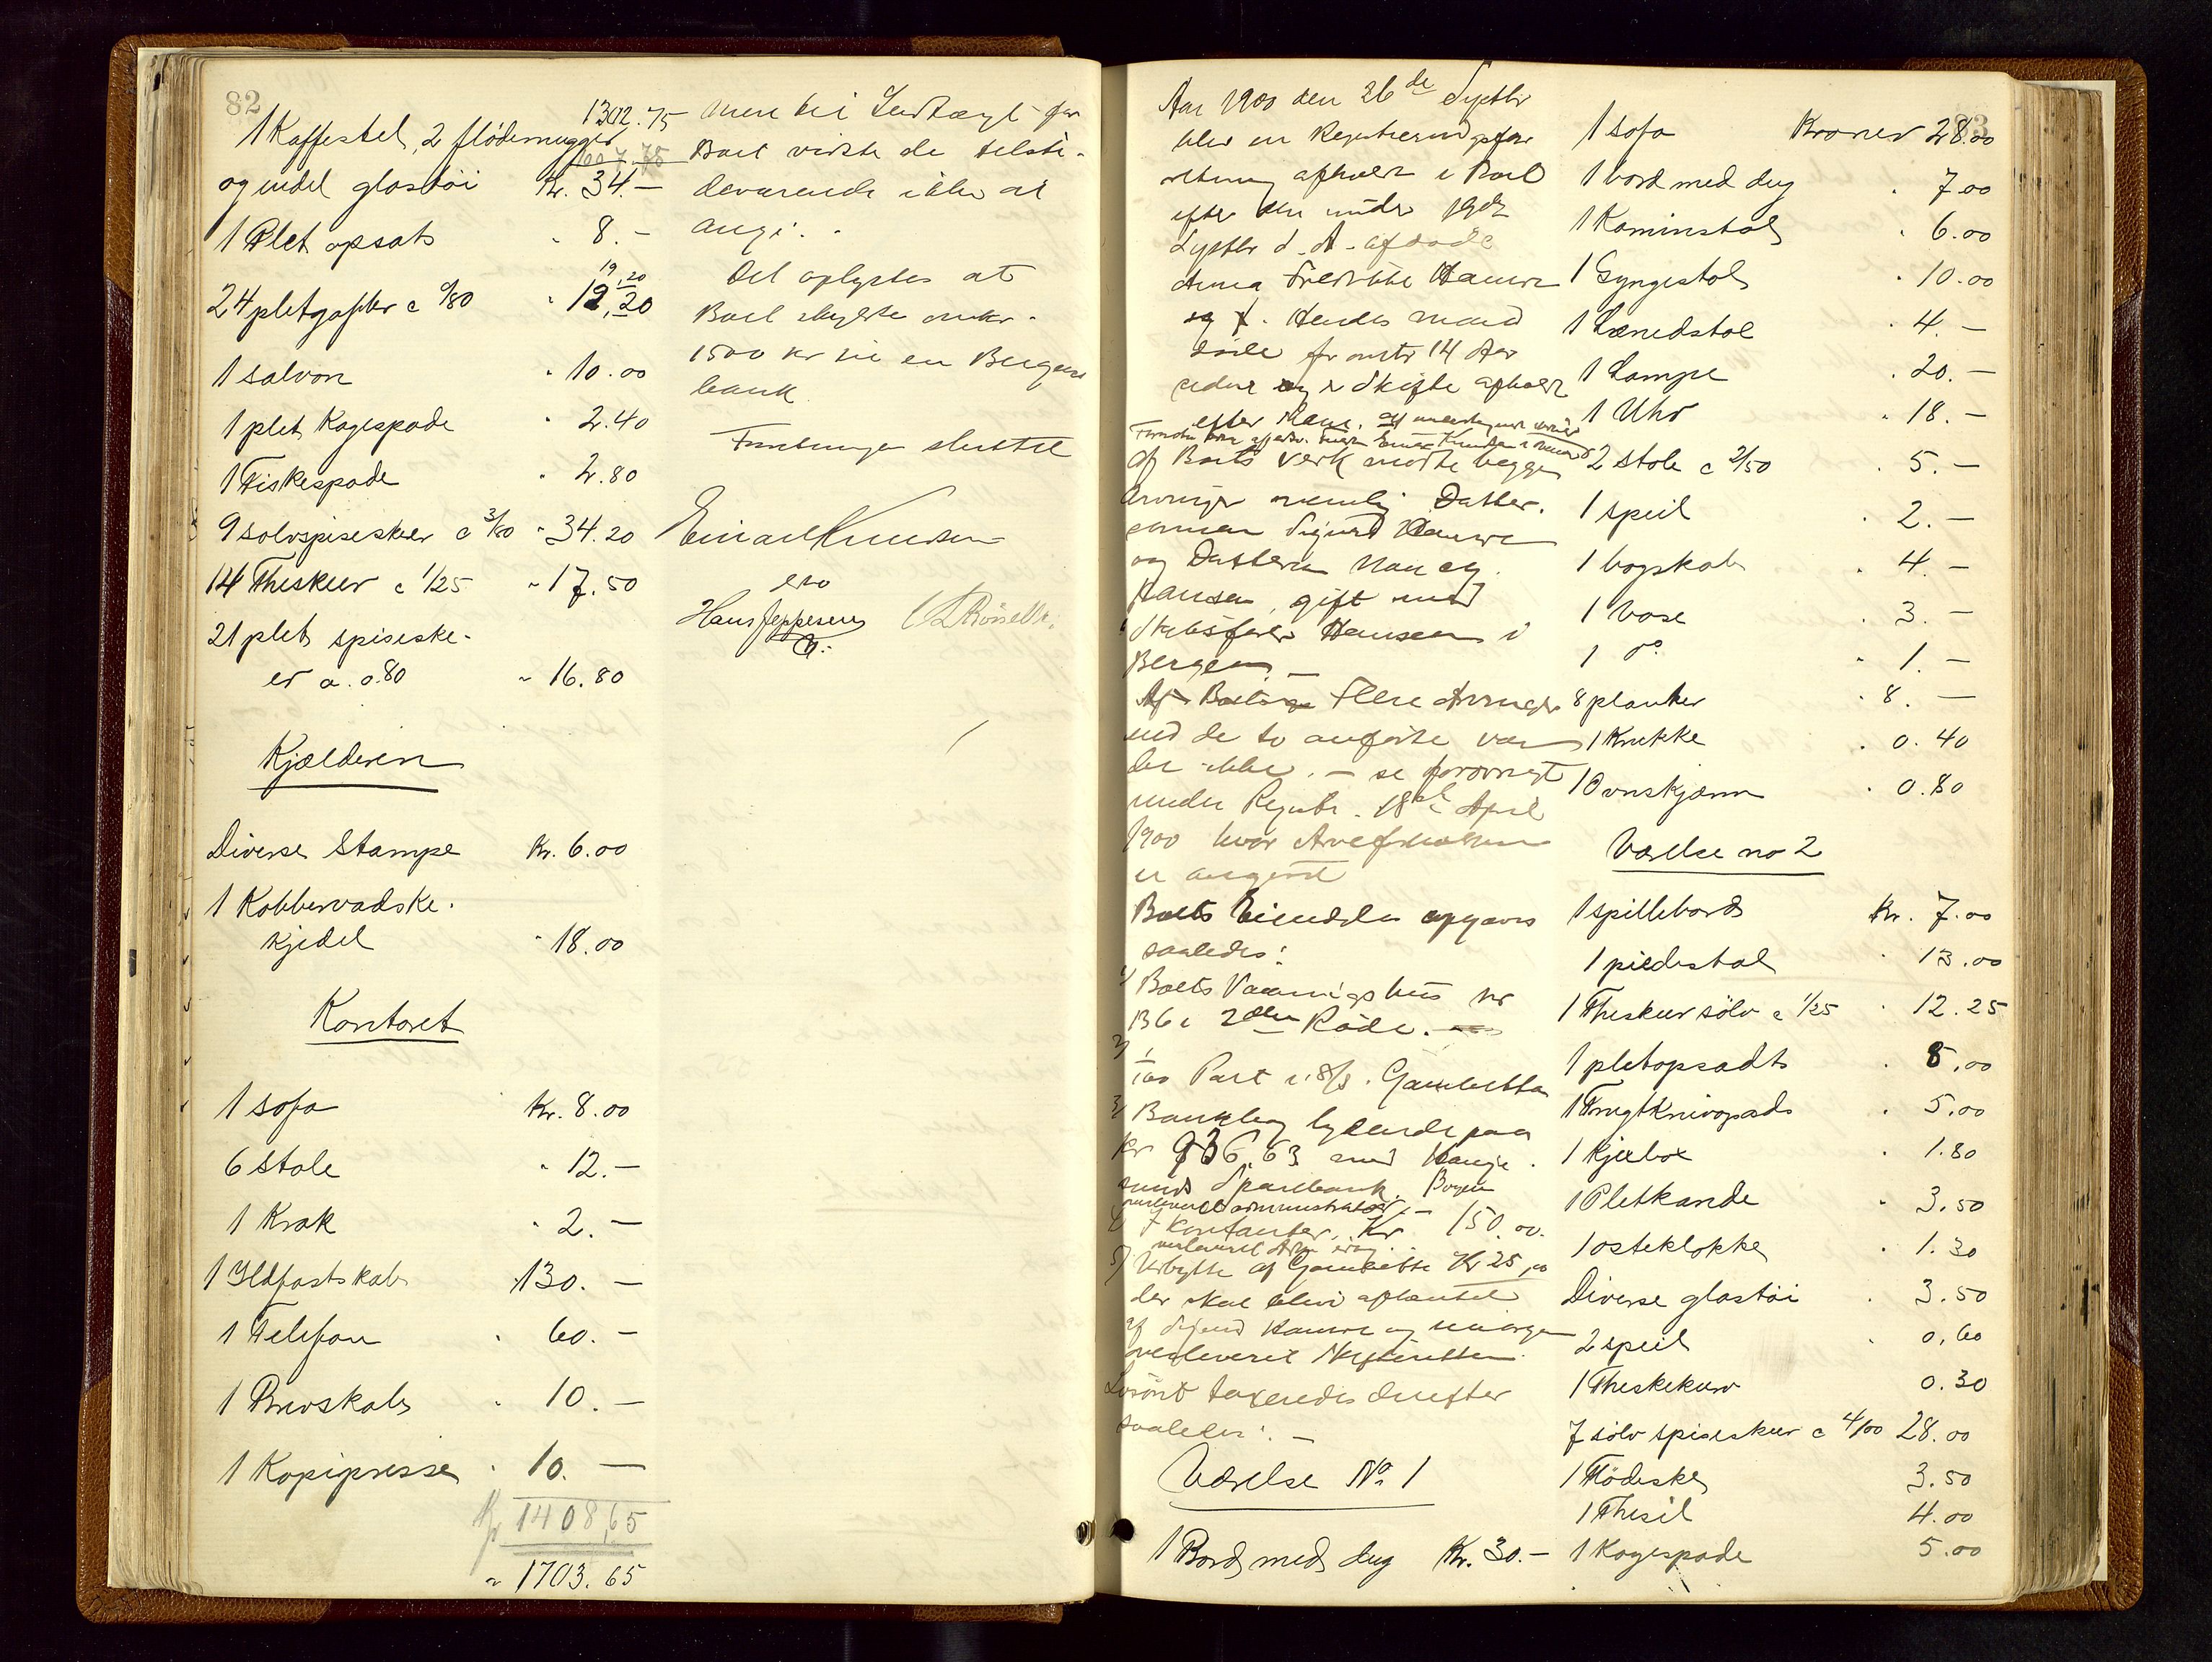 82
1302.75
1 Kaffestel, 2 flödemugger
og endel glastöi Kr. 34.—
1 Plet opsats " 8.—
19.20
24 pletgafler a 0/80 " 19.20
1 salvon " 10.00
1 plet Kagespade " 2.40
1 Fiskespade " 2.80
9 sölvspiseskeer a 3/80 " 34.20
14 Theskeer a 1/25 " 17.50
21 plet spiseske-
er a. 0.80 " 16.80
Kjælderen
Diverse Stampe Kr. 6.00
1 Kobbervadske-
kjedel " 18.00
Kontoret
1 sofa Kr. 8.00
6 stole " 12.—
1 Krak " 2.—
1 Ildfastskab " 130.—
1 Telefon " 60.—
1 Brevskab " 10.—
1 Kopipresse " 10.—
Kr 1408,65
" 1703.65
mere til Indtægt for
Boet vidste de tilste-
deværende ikke at
angi.
Det oplystes at
Boet skyldte omkr.
1500 kr til en Bergens
bank
Forretningen sluttet
Einar Knudsen
Hans Jeppesen
83
Aar 1900 den 26de Septbr
blev en Registreringsfor
retning afholdt i Boet
efter den under
Septbr d. A. afdøde
Anna Fredrikke Hauwe
Hendes mand
døde for omtr 14 Aar
siden og er Skifte afholdt
efter Mand.
af Boets verk mødte begge
Arvinger nemlig Datter-
sønnen Sigurd Hauwe
og Datteren Nancy
Hansen, gift med
Skibsfører Hansen i
Bergen.—
Flere Arvinger
end de to anførte var
der ikke. — se forøvrigt
under Registr. 18de April
1900 hvor Arveforholdene
er angivet
Boets Eiendele opgaves
saaledes:
1/ Boets Vaaningshus nr
136 i 2den Rode.
2/ 1/100 Part i S/S. Gambetta
3/ Bankbog lydende paa
Kr 936.63 med Hauge-
sunds Sparebank. Bogen
4/ I Kontanter. Kr 150.00.
5/ Udbytte af Gambetta Kr 25,00
der skal blive afhentet
af Sigurd Hauwe og imorgen
overleveret Skifteretten.
Løsøret taxeredes derefter
saaledes: —
Værelse No 1
1 Bord med dug Kr. 30.—
1 sofa Kroner 28.00
1 bord med dug " 7.00
1 Kaminstol " 6.00
1 Gyngestol " 10.00
1 Lænedstol " 4.—
1 Lampe " 20.—
1 Uhr " 18.—
2 stole a 2/50 " 5.—
1 speil " 2.—
1 bogskab " 4.—
1 Vase " 3.—
1 do " 1.—
8 planter " 8.—
1 Krukke " 0.40
1 Ovnskjærm " 0.80
Værelse no 2
1 spillebord Kr. 7.00
1 piedestal " 13.00
1 Theskeer sölv a 1/25 " 12.25
1 pletopsadts " 8.00
1 Frugtknivopsads " 5.00
1 Kjexbox " 1.80
1 Pletkande " 3.50
1 osteklokke " 1.30
Diverse glastöi " 3.50
2 speil " 0.60
1 Theskekurv 0.30
7 sölv spiseskeer a 4/00 28.00
1 Flödeske 3.50
1 Thesil 4.00
1 Kagespade 5.00